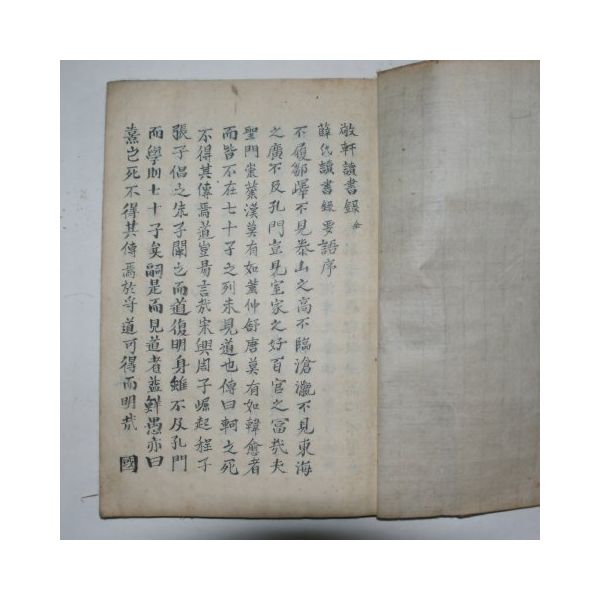 敬軒讀書錄全
薛氏讀書錄要語序
不履鄒嶧不見泰山之高不臨滄瀛不見東海
之廣不及孔門豈見室家之好百官之富哉夫
聖門崇業漢莫有如董仲舒唐莫有如韓愈者
而皆不在七十子之列未見道也傳曰軻之死
不得其傳焉道豈易言哉宋興周子崛起程子
張子倡之朱子闡之而道復明身雖不及孔門
而學則七十子矣嗣是而見道者益鮮愚亦曰
熹之死不得其傳焉於乎道可得而明哉 國